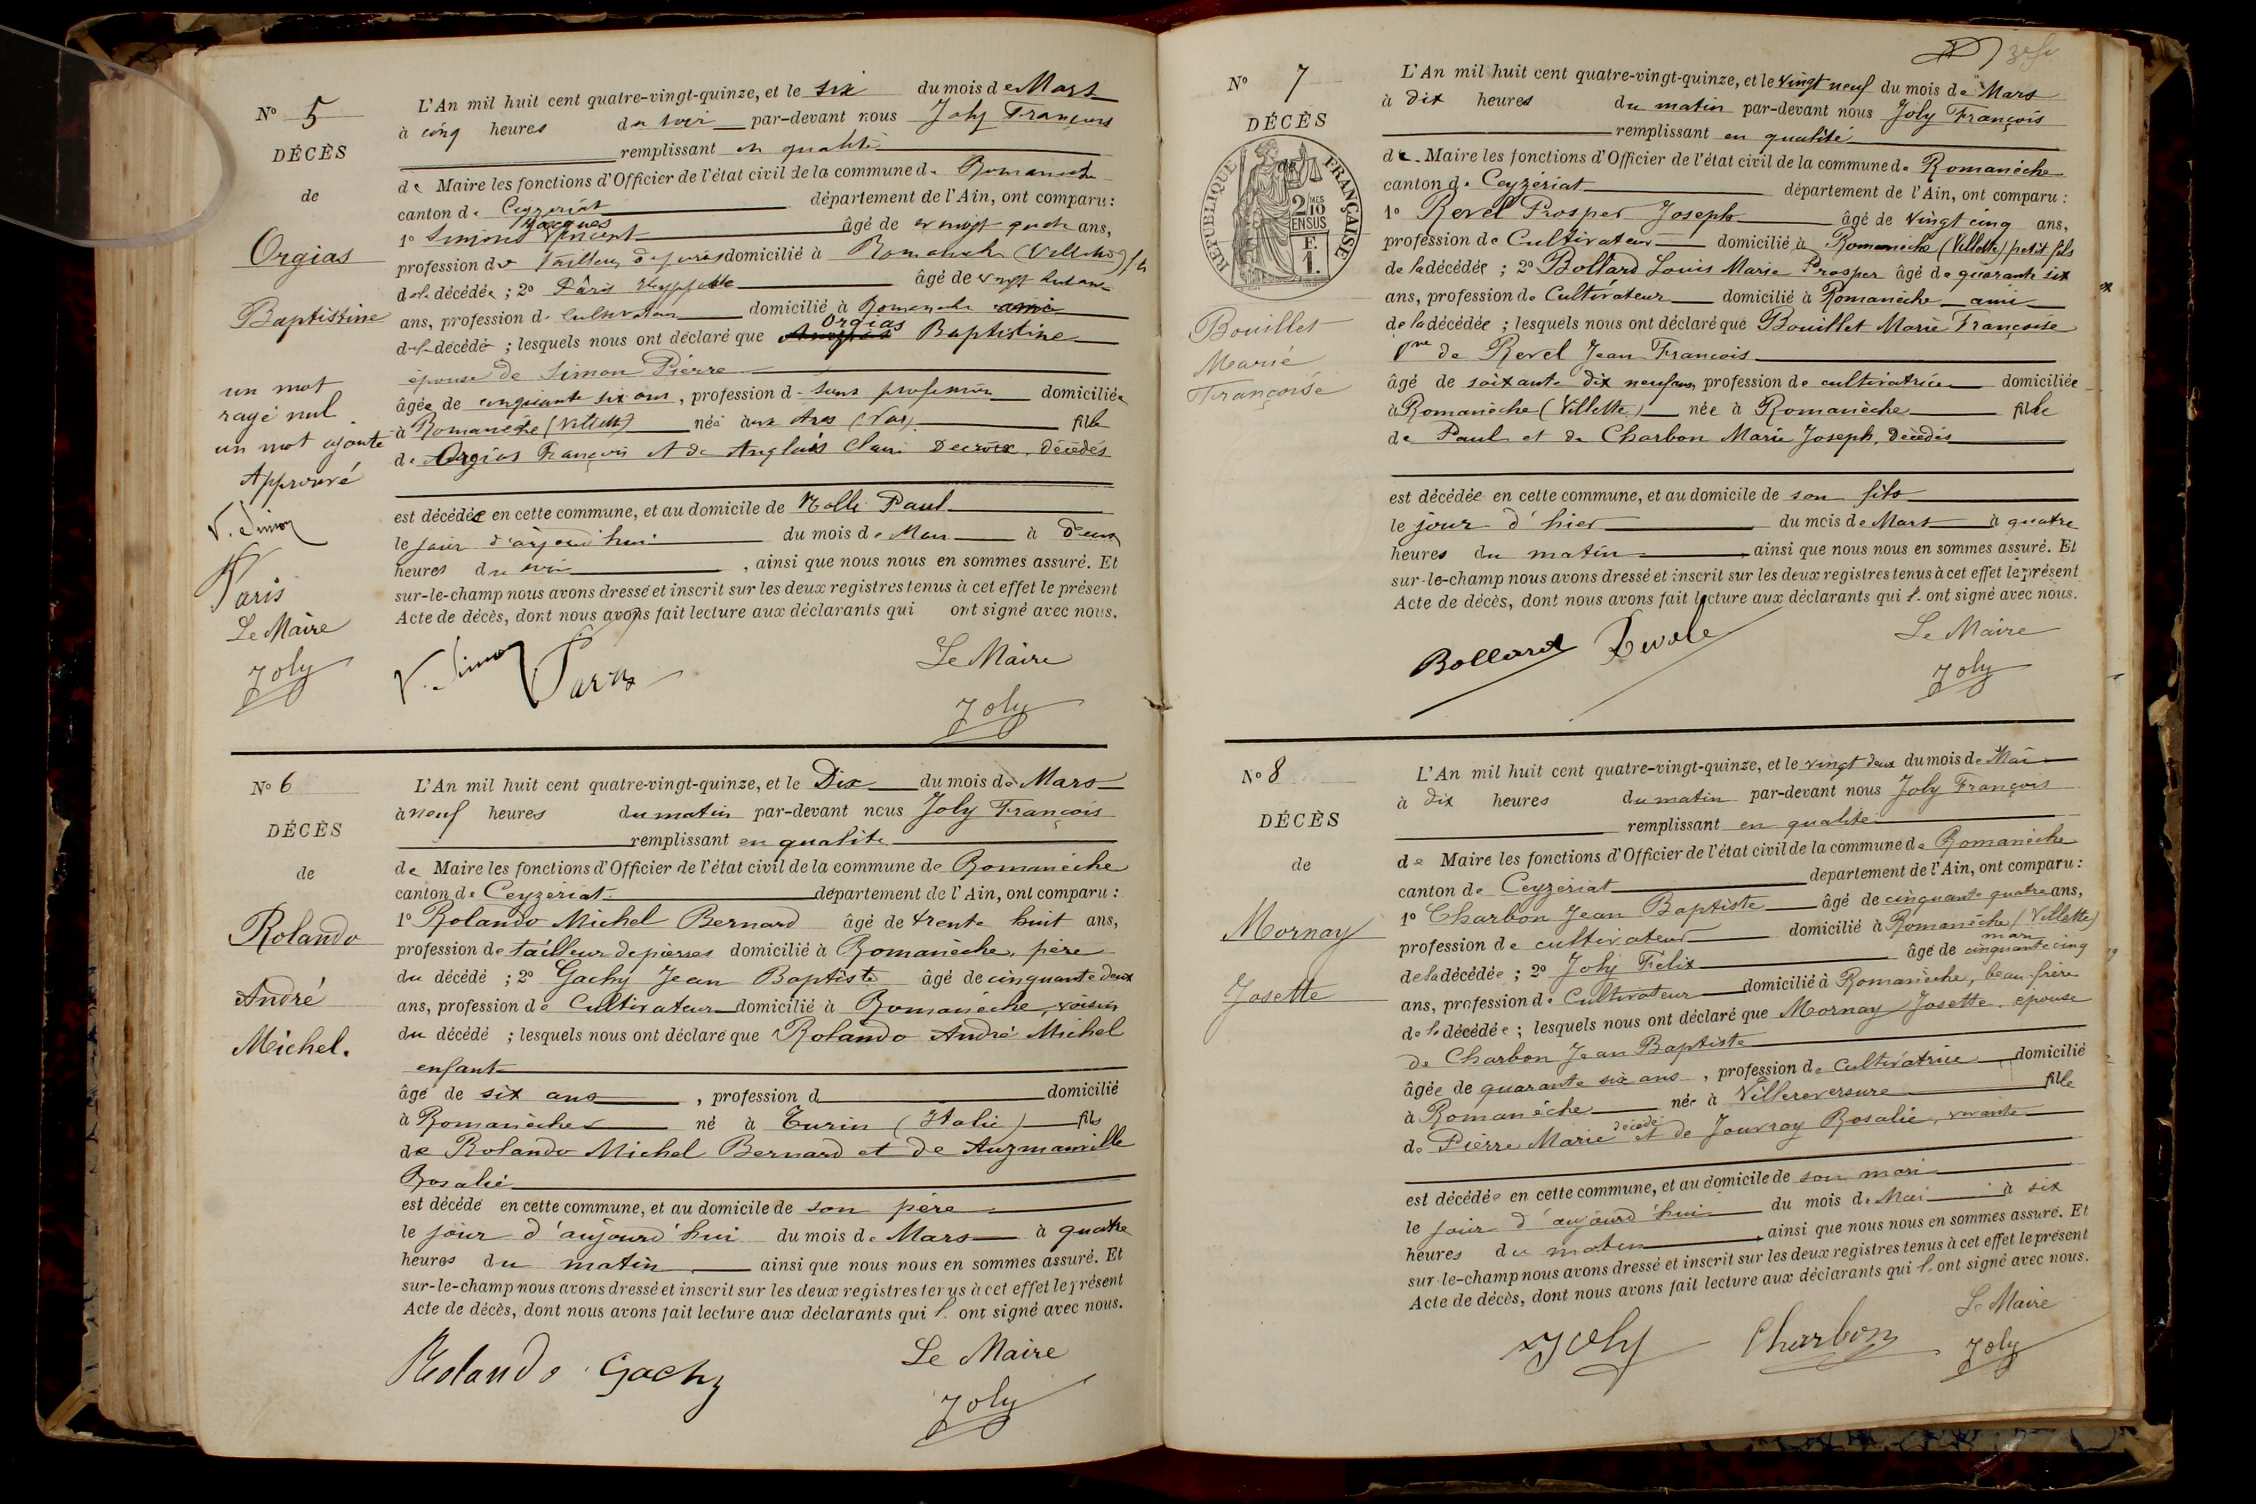 No 5
DÉCÈS
de
Orgias
Baptistine
un mot
rayé nul
un mot ajouté
Approuvé
V. Simon
Paris
Le Maire
Joly
L'An mil huit cent quatre-vingt-quinze, et le six du mois de Mars
à cinq heures du soir par-devant nous Joly François
remplissant en qualité
de Maire les fonctions d'Officier de l'état civil de la commune de Romanèche
canton de Ceyzeriat département de l'Ain, ont comparu :
1o Simond Jacques Vincent âgé de vingt quatre ans,
profession de Tailleur de pierres domicilié à Romanèche (Villette)
de la décédée ; 2o Pâris âgé de vingt
ans, profession de cultivateur domicilié à Romanèche ami
de la décédé ; lesquels nous ont déclaré que Orgias Baptistine
épouse de Simon Pierre
âgée de cinquante six ans, profession de sans profession domiciliée
à Romanèche (Villette) née aux Arcs (Var) fille
de Orgias François et de Anglais Claire Decroix, décédés
est décédée en cette commune, et au domicile de Rolli Paul
le jour d'aujourd'hui du mois de Mars à deux
heures du soir, ainsi que nous nous en sommes assuré. Et
sur-le-champ nous avons dressé et inscrit sur les deux registres tenus à cet effet le présent
Acte de décès, dont nous avons fait lecture aux déclarants qui ont signé avec nous.
V. Simon Paris Le Maire
Joly
No 6
DÉCÈS
de
Rolando
André
Michel.
L'An mil huit cent quatre-vingt-quinze, et le Dix du mois de Mars
à neuf heures du matin par-devant nous Joly François
remplissant en qualité
de Maire les fonctions d'Officier de l'état civil de la commune de Romanèche
canton de Ceyzeriat département de l'Ain, ont comparu :
1o Rolando Michel Bernard âgé de trente huit ans,
profession de tailleur de pierres domicilié à Romanèche, père
du décédé ; 2o Gachy Jean Baptiste âgé de cinquante deux
ans, profession de Cultivateur domicilié à Romanèche, voisin
du décédé ; lesquels nous ont déclaré que Rolando André Michel
enfant
âgé de six ans, profession d domicilié
à Romanèche né à Turin (Italie) fils
de Rolando Michel Bernard et de Auzmanville
Rosalie
est décédé en cette commune, et au domicile de son père
le jour d'aujourd'hui du mois de Mars à quatre
heures du matin ainsi que nous nous en sommes assuré. Et
sur-le-champ nous avons dressé et inscrit sur les deux registres tenus à cet effet le présent
Acte de décès, dont nous avons fait lecture aux déclarants qui l. ont signé avec nous.
Rolando Gachy Le Maire
Joly
No 7
DÉCÈS
de
RÉPUBLIQUE FRANÇAISE
2 MES 10 EN SUS
F. 1.
Bouillet
Marie
Françoise
L'An mil huit cent quatre-vingt-quinze, et le vingt neuf du mois de Mars
à dix heures du matin par-devant nous Joly François
remplissant en qualité
de Maire les fonctions d'Officier de l'état civil de la commune de Romanèche
canton de Ceyzériat département de l'Ain, ont comparu :
1o Revel Prosper Joseph âgé de vingt cinq ans,
profession de Cultivateur domicilié à Romanèche (Villette) petit fils
de la décédée ; 2o Bollard Louis Marie Prosper âgé de quarante six
ans, profession de Cultivateur domicilié à Romanèche ami
de la décédée ; lesquels nous ont déclaré que Bouillet Marie Françoise
Vve de Revel Jean Francois
âgé de soixante dix neuf ans, profession de cultivatrice domiciliée
à Romanèche (Villette) née à Romanèche fille
de Paul et de Charbon Marie Joseph, décédés
est décédée en cette commune, et au domicile de son fils
le jour d'hier du mois de Mars à quatre
heures du matin, ainsi que nous nous en sommes assuré. Et
sur-le-champ nous avons dressé et inscrit sur les deux registres tenus à cet effet le présent
Acte de décès, dont nous avons fait lecture aux déclarants qui l. ont signé avec nous.
Bollard Le Maire
Joly
No 8
DÉCÈS
de
Mornay
Josette
L'An mil huit cent quatre-vingt-quinze, et le vingt deux du mois de Mai
à dix heures du matin par-devant nous Joly François
remplissant en qualité
de Maire les fonctions d'Officier de l'état civil de la commune de Romanèche
canton de Ceyzériat département de l'Ain, ont comparu :
1o Charbon Jean Baptiste âgé de cinquante quatre ans,
profession de cultivateur domicilié à Romanèche (Villette) mari
de la décédée ; 2o Joly Félix âgé de cinquante cinq
ans, profession de Cultivateur domicilié à Romanèche, beau-frère
de la décédée ; lesquels nous ont déclaré que Mornay Josette épouse
de Charbon Jean Baptiste
âgée de quarante six ans, profession de cultivatrice domicilié
à Romanèche née à Villereversure fille
de Pierre Marie décédé et de Jouvray Rosalie, vivante
est décédée en cette commune, et au domicile de son mari
le jour d'aujourd'hui du mois de Mai à six
heures du matin, ainsi que nous nous en sommes assuré. Et
sur-le-champ nous avons dressé et inscrit sur les deux registres tenus à cet effet le présent
Acte de décès, dont nous avons fait lecture aux déclarants qui l. ont signé avec nous.
Joly Charbon Le Maire
Joly